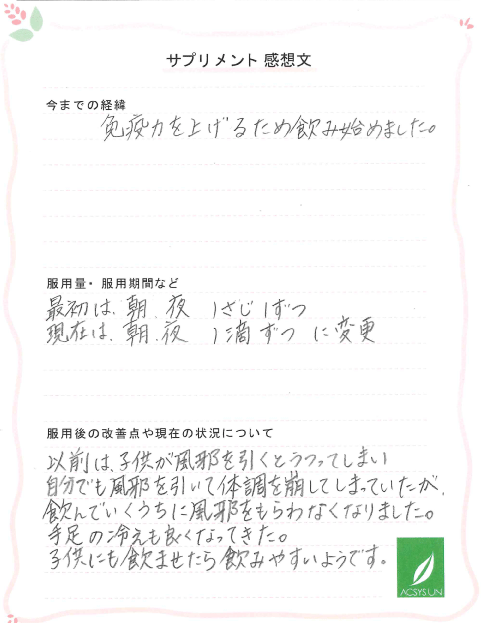 サプリメント 感想文
今までの経緯
免疫力を上げるため飲み始めました。
服用量・服用期間など
最初は、朝、夜 1さじずつ
現在は、朝、夜 1滴ずつ に変更
服用後の改善点や現在の状況について
以前は、子供が風邪を引くとうつってしまい
自分でも風邪を引いて体調を崩してしまっていたが、
飲んでいくうちに風邪をもらわなくなりました。
手足の冷えも良くなってきた。
子供にも飲ませたら飲みやすいようです。
ACSYSUN